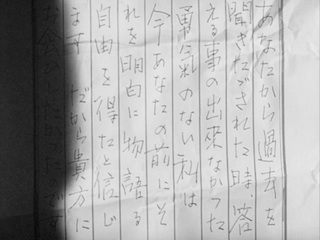 あなたから過去を
聞きたゞされた時、答
える事の出来なかった
勇氣のない私は
今あなたの前にそ
れを明白に物語る
自由を得たと信じ
ます だから貴方に